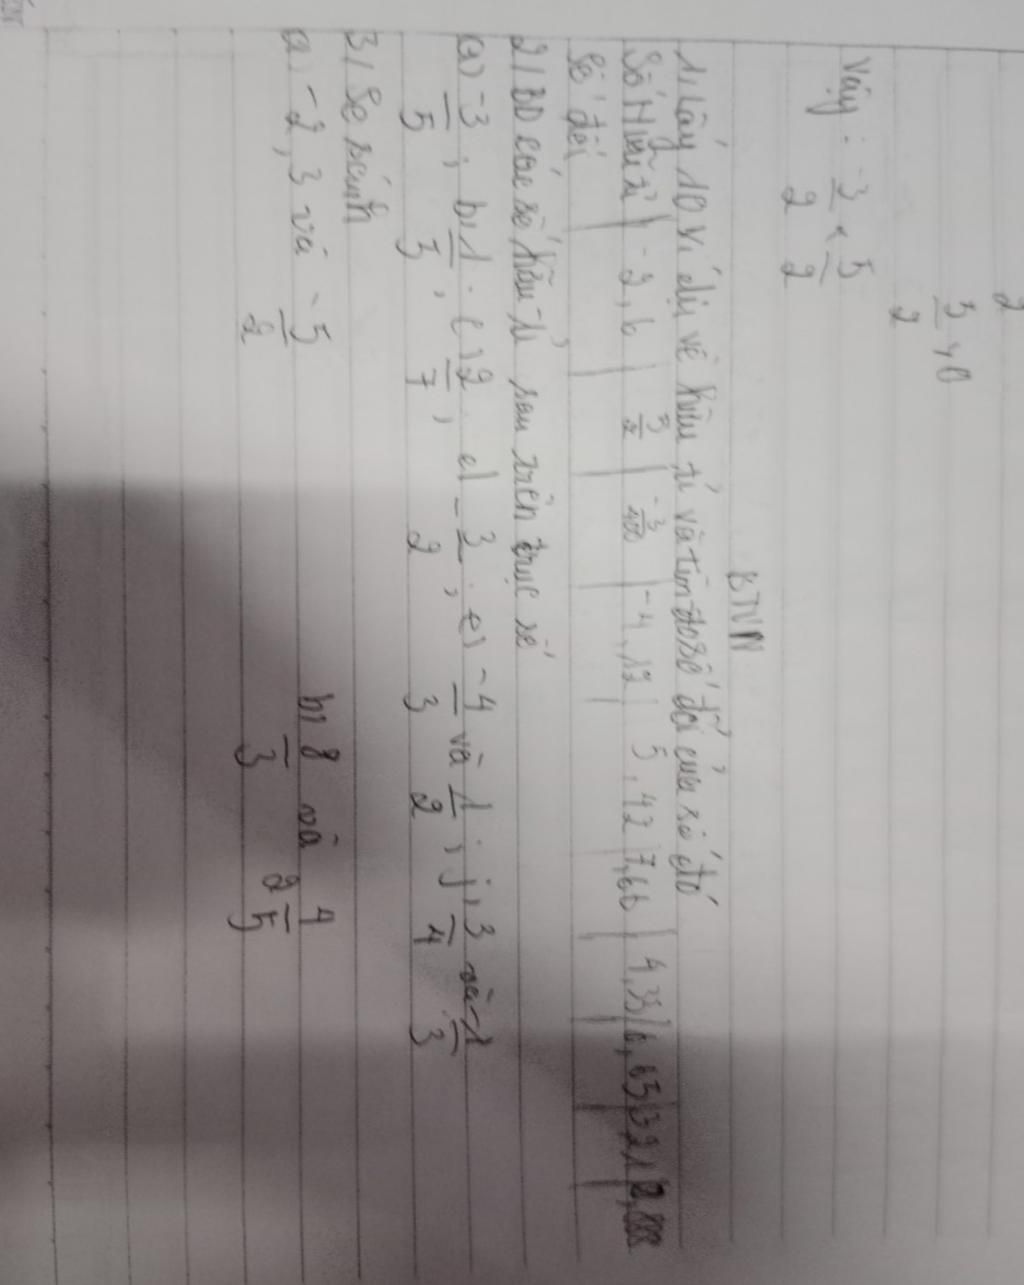 2
3/2 > 0
Vậy: -3/2 < 5/2
BTVN
1, Lấy 10 ví dụ về hữu tỉ và tìm số đối của số đó
Số Hữu tỉ | -2,6 | 3/2 | -3/400 | -4,12 | 5,42 | 7,66 | 4,35 | 6,65 | 32,1 | 2,888
Số đối
2/ BD các số hữu tỉ sau trên trục số
a) -3/5, b, 1/3, c, 2/7, d) -3/2, e, -4/3 và 1/2, j, 3/4 và -1/3
3/ So sánh
a, -2,3 và -5/2 b, 8/3 và 2 4/5